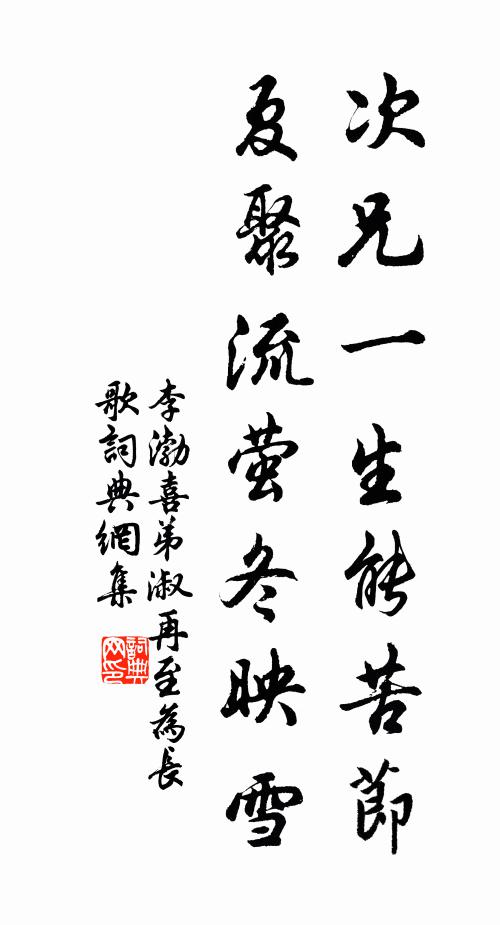 次兄一生能苦節
夏聚流萤冬映雪
李渤喜弟淑再至為長
歌詞典網集
詞典
网印